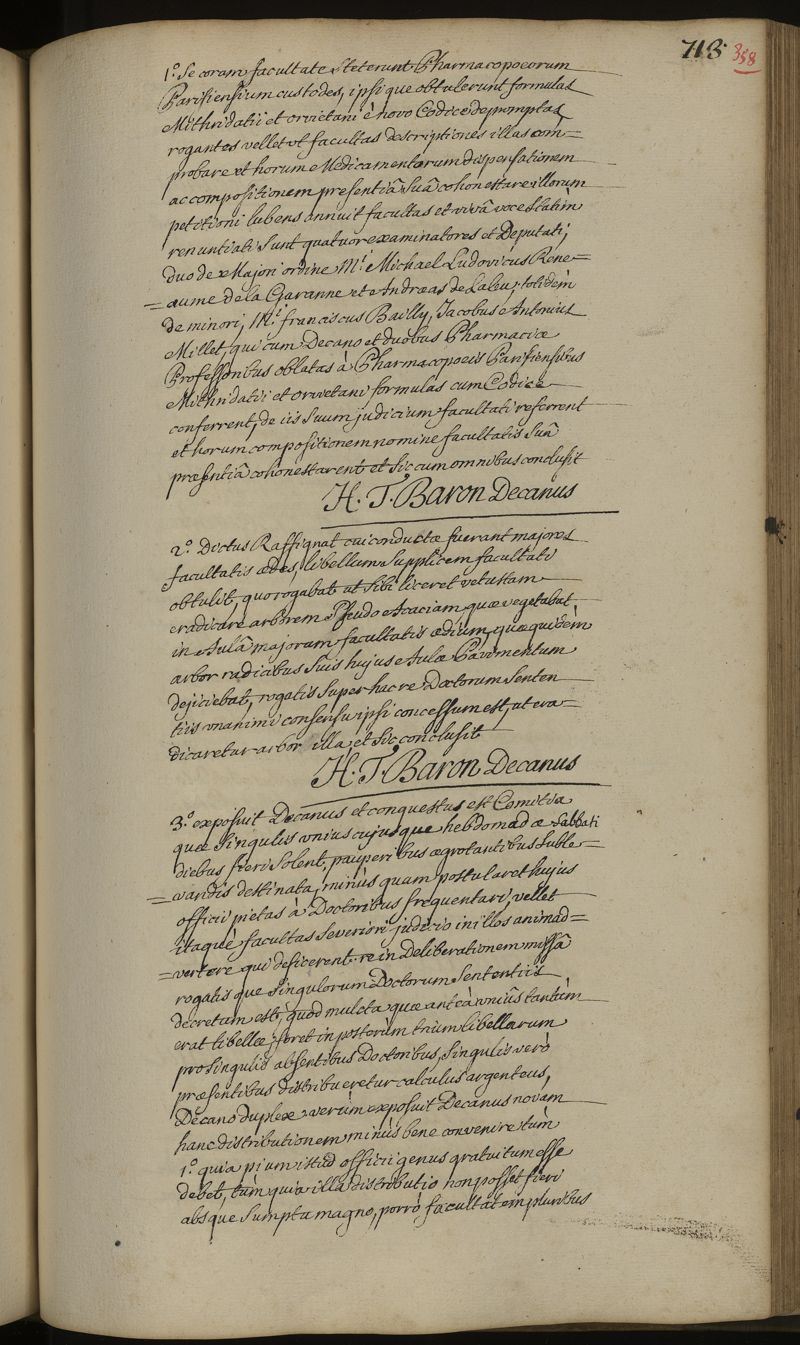 713 358
1.° Se coram facultate steterunt Pharmacopoeorum
Parisiensium custodes, ipsi que obtulerunt formulas
Mithridatii et orvietani è novo Codice depromptas
rogantes vellet ut facultas descriptiones illas com=
probare et horum Medicamentorum dispensationem
ac compositionem presentiâ Suâ cohonestare illorum
petitioni lubens annuit facultas et vivâ voce Statim
renuntiati Sunt quatuor examinatores et Deputati,
duo de Majori ordine M.ri Michael Ludovicus Rene=
=aume de la Garanne et Andraeas de Laleu, totidem
de minori, M.ri franciscus Bailly, Jacobus Antonius
Millet, qui cum Decano et duobus Pharmaciae
Professoribus oblatas à Pharmacopoeis Parisiensibus
Mithridatii et orvietani formulas cum Codice
conferrent, de iis Suum judicium facultati referrent
et horum compositionem nomine facultatis Suâ
praesentiâ cohonestarent et Sic cum omnibus conclusit
H. T. Baron Decanus
2.° Dictus Raffignat cui conductae fuerant majores
facultatis aedes, libellum Supplicem facultati
obtulit, quo rogabat ut Sibi liceret vetustam
eradicare arborem Pseudo Acaciam quae vegetabat
in Aulâ majorum facultatis aedium, quaequidem
arbor radicibus Suis hujus Aulae Pavimentum
dejiciebat, rogatis Super hac re Doctorum Senten
tiis unanimi consensu ipsi concessum est, ut era=
dicaretur arbor illa, et Sic conclusit
H. T. Baron Decanus
3.° exposuit Decanus et conquestus est Comitia
quae Singulis unius cujusque hebdomadae Sabbati
diebus fieri Solent, pauperibus aegrotantibus Suble=
=vandis destinata, minùs quam postularet hujus
officii pietas à Doctoribus frequentari, vellet
itaque facultas Severiori judicio in illos animad=
=vertere qui deficerent. re in Deliberationem missâ
rogatis que Singulorum Doctorum Sententiis
decretum est, quod mulcta quae anteà uniùs tantùm
erat libellae, foret in posterùm trium libellarum
pro Singulis absentibus Doctoribus, Singulis verò
praesentibus distribueretur calculus argenteus,
Decano duplex verùm exposuit Decanus novam
hanc distributionem minùs bene convenire tùm
1.° quia pium istud officii genus gratuitum esse
debet, tùm quia illa distributio non posset fieri
absque Sumptu magno, porrò facultatem pluribus